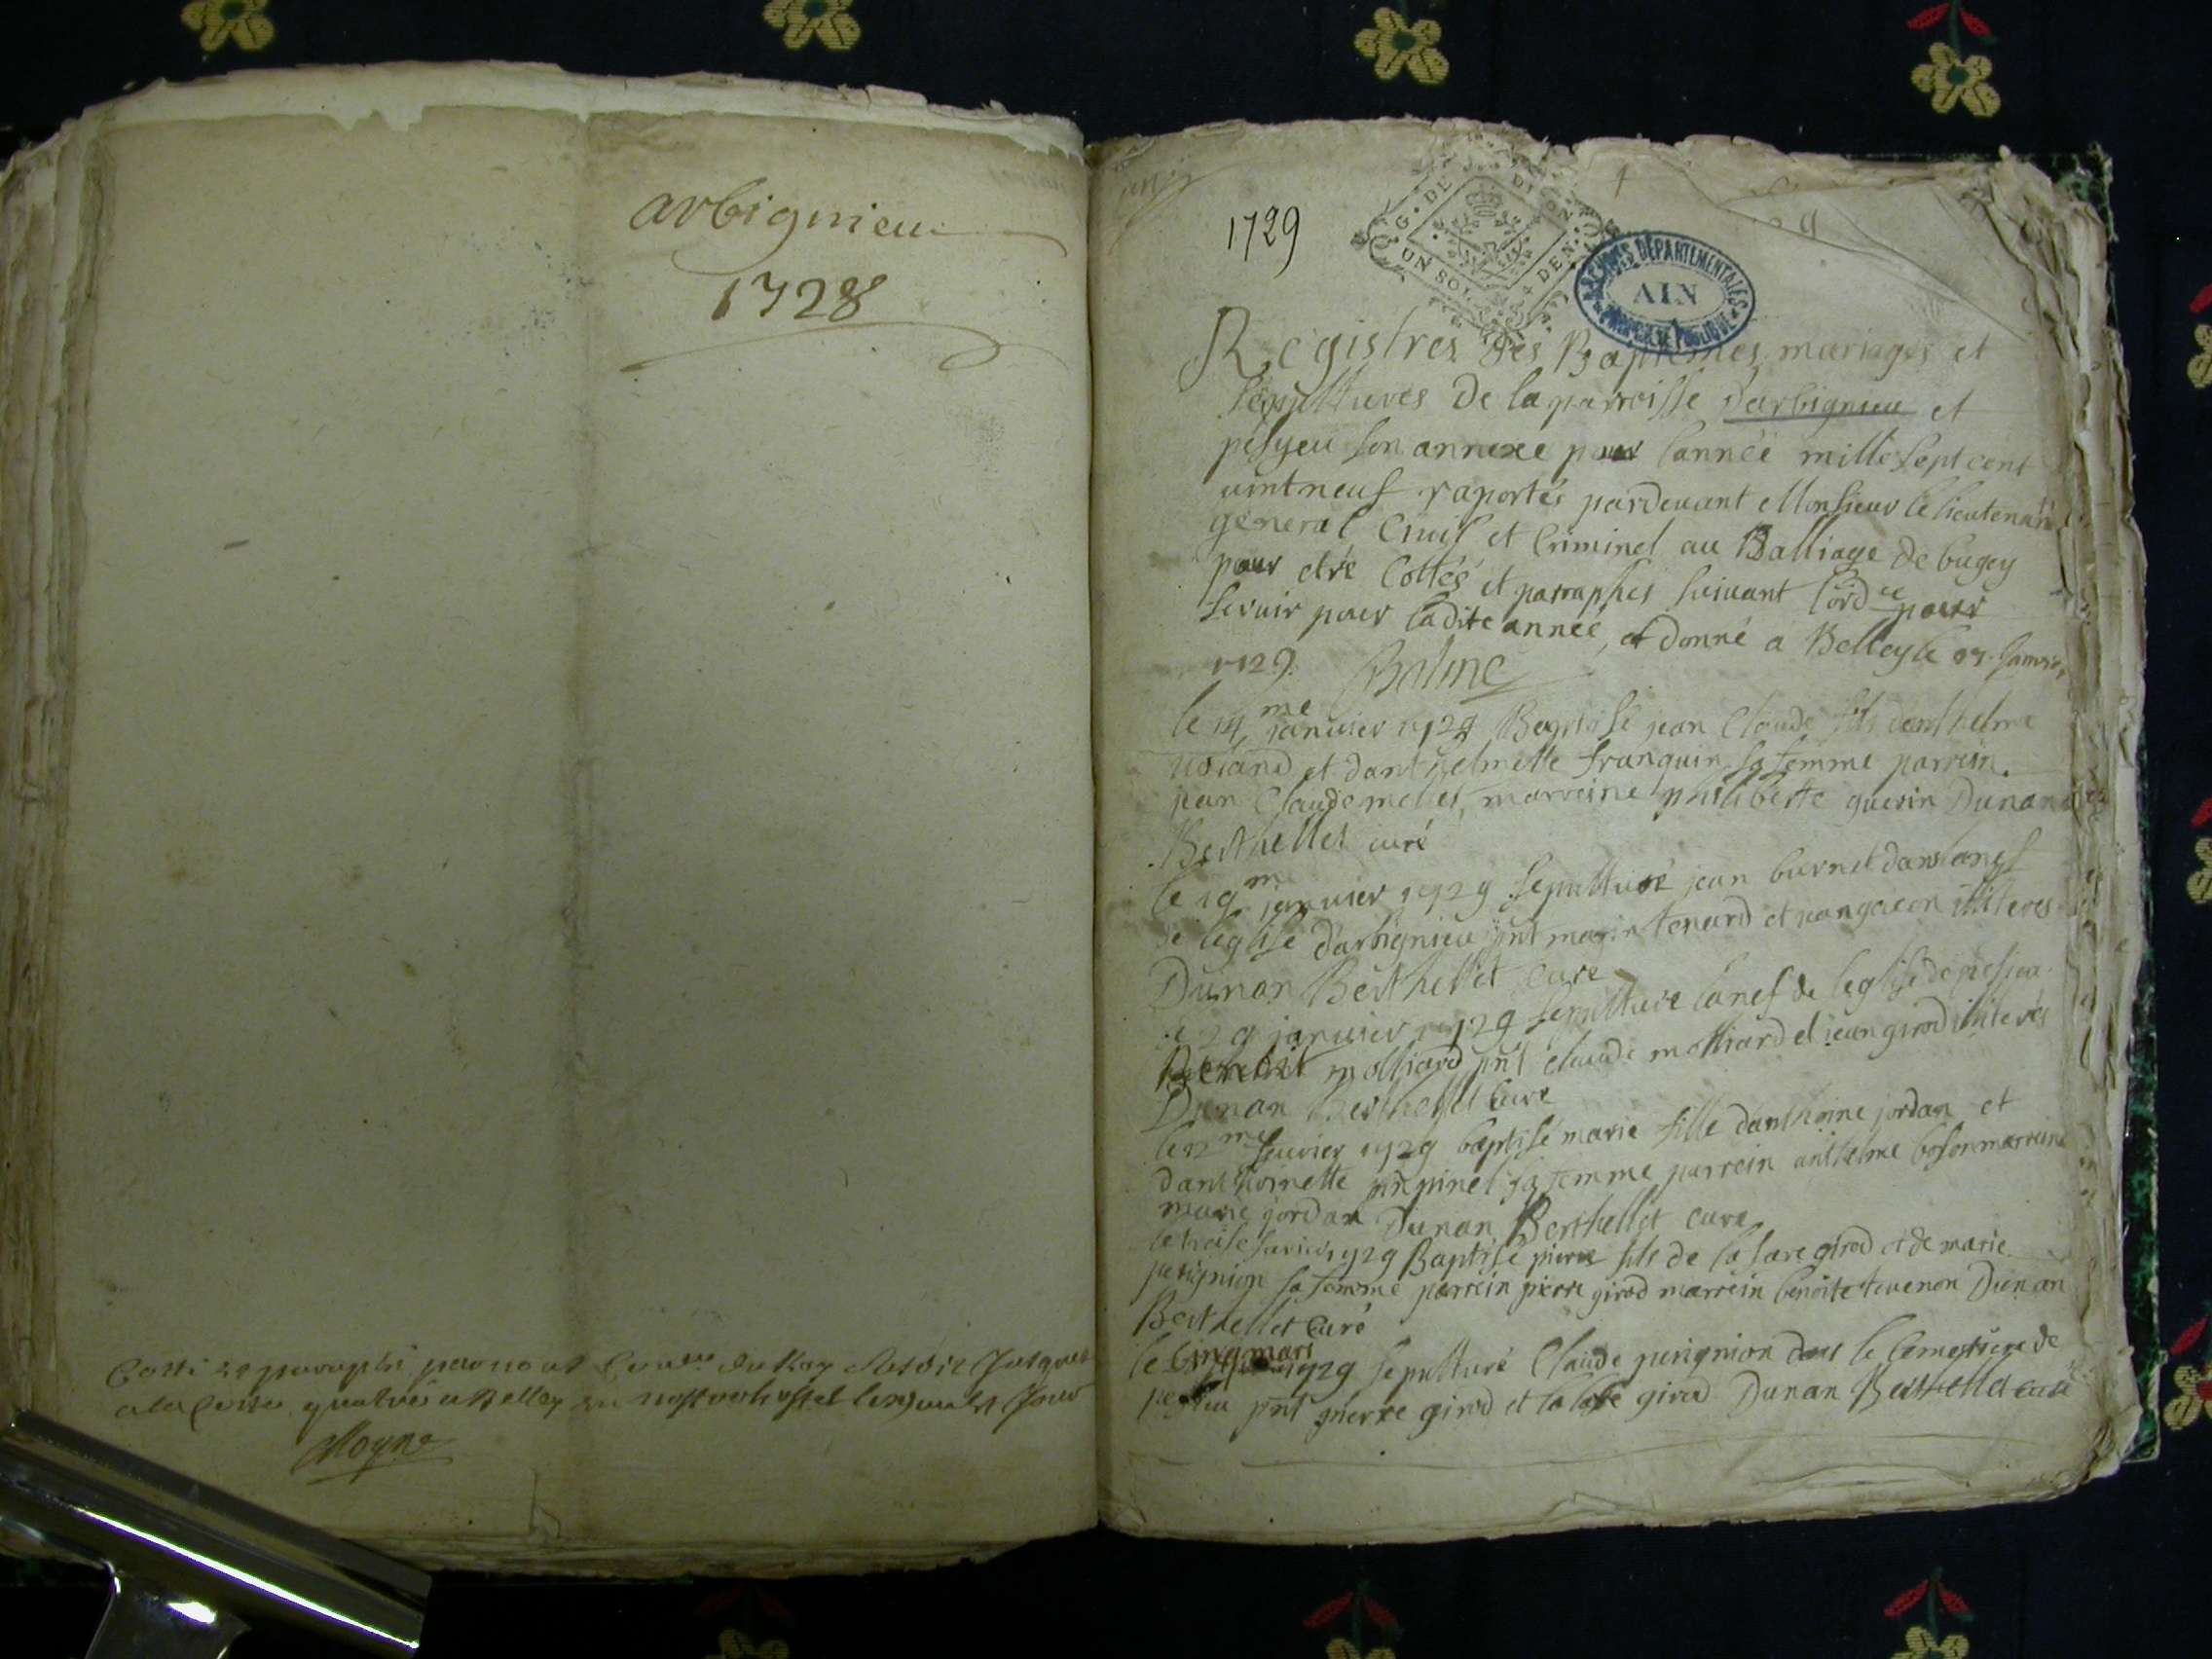 arbignieu
1728
Cotté et paraphé par nous
a la Cotte quatre a Belley en nostre hostel
Moyne
1729
G. DE DIJON
UN SOL 4 DEN.
ARCHIVES DÉPARTEMENTALES
AIN
PROPRIÉTÉ PUBLIQUE
Registres des Baptemes, mariages et
sepultures de la parroisse d'arbignieu et
pesyeu son annexe pour lannée mille sept cent
vint neuf raportés pardevant Monsieur le lieutenant
general Civil et Criminel au Balliage de bugey
pour etre Cottés et parraphes suivant lord ce pour
servir pour ladite année, et donné a Belley le janvier
1729. Balme
le 14 me janvier 1729 Baptisé jean Claude fils danthelme
et danthelmette franquin sa femme parrein
jean Claude melet, marreine philiberte guerin Dunan
Berthellet curé
le 19 m janvier 1729 sepulturé jean burnet dans la nef
de leglise d'arbignieu pnt tenard et jean illiteres
Dunan Berthellet Curé
le 29 janvier 1729 sepulturé la nef de leglise de
Benoit molliard pnt claude molliard et jean girod illiterés
Dunan Berthellet Curé
le me fevrier 1729 baptisé marie fille danthoine jordan et
danthoinette pinpinel sa femme parrein anthelme boson marreine
marie jordan Dunan Berthellet curé
le treise fevrier 1729 Baptisé pierre fils de lasare girod et de marie
perignion sa femme parrein pierre girod marrein benoite tevenon Dunan
Berthellet Curé
le cinq mars 1729 sepulturé Claude perignion dans le Cemetiere de
pesieu pnt pierre girod et lasare girod Dunan Berthellet curé